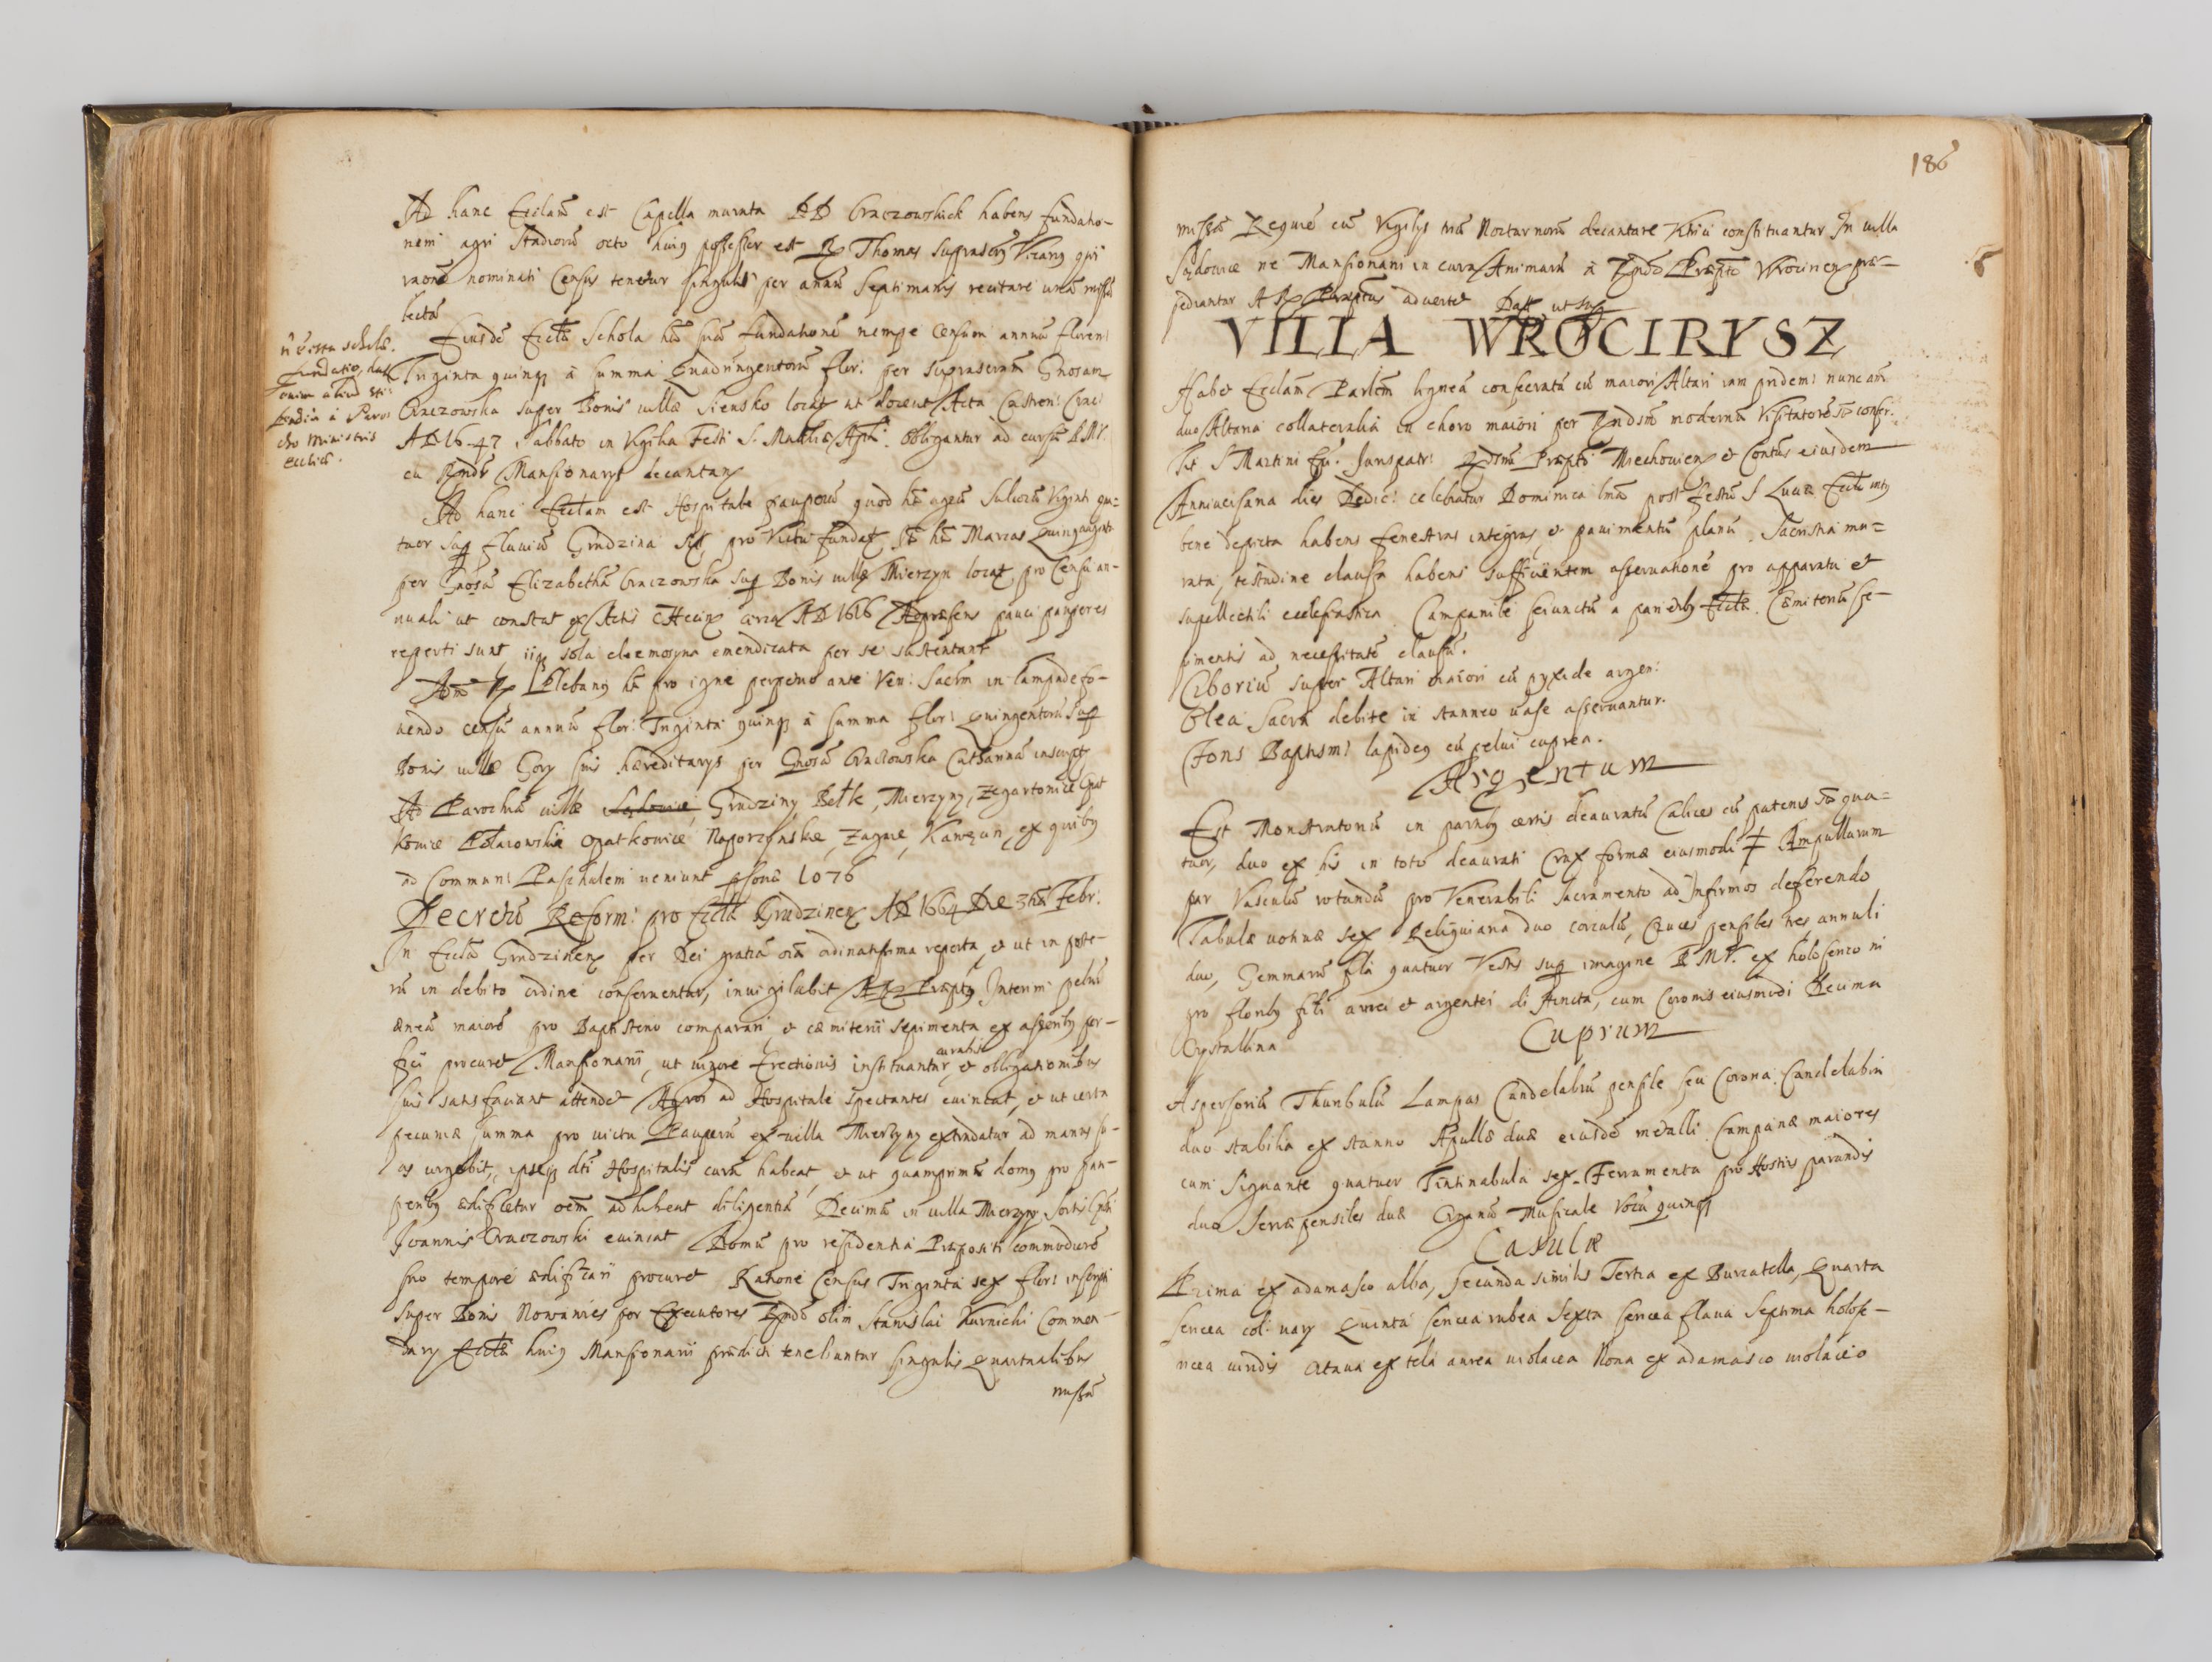 Ad hanc Ecclam est Capella murata DD Graczowskich habens fundatio-
nem agri stadiorū octo huiq possessor est R Thomas suprascrip Vicarq qui
raōne nominati Census tenetur singulis per annū Septimanis recitare unā missā
lectā
Eiusdē Ecclæ Schola hēt suā fundationē nempe Censum annuū floren:
Triginta quinq à summa Quadringentorū flor: per suprascriptam Gnosam
Graczowska super Bonis villæ Siensko locat ut docent Acta Castren: Crac:
AD 1647 Sabbato in Vigilia Festi S. Matthiæ Apli. Obligantur ad cursū BMV.
cū Rndis Mansionarys decantan
nō est ista scholæ
fundatio, dat
tamen aliud sti-
pendiū à Paro-
cho Ministris
Ecclīæ.
Ad hanc Ecclam est Hospitale pauperū quod hēt agrū sulcorū Viginti qua-
tuor sup fluviū Grudzina sit, pro victu fundat It hēt Marcas Quinquaginta
per Gnosā Elizabethā Graczowska sup Bonis villæ Mierzyn locat pro Censu an-
nuali ut constat ex Actis circa AD 1616 Adpræsens pauci pauperes
reperti sunt, iiq sola eleemosyna emendicata per se sustentant
Itm R Plebanq hēt pro igne perpetuo ante Ven: Sacrm in lampade fo-
vendo censū annuū flor: Triginta quinq à summa flor: Quingentorū sup
Bonis villæ Gory suis hæreditarys per Gnosā Graczowska Catharinā inscript
Ad Parochiā villæ Sędowice, Grudziny, Bełk, Mierzyny, Zegartowice Opat
kowice Pełarowskie Opatkowice Nagorzynskie, Zagaie, Kawęzyn, ex quibq
ad Commun: Paschalem veniunt psonæ 1076
Decretū Reform: pro Eccla Grudzinen AD 1664 Die 3tia Febr:
In Eccla Grudzinen per Dei gratiā oīa ordinatissima reperta, et ut in poste-
rū in debito ordine conserventur, invigilabit AR Præptq Interim peluī
æneā maiorē pro Baptisterio comparari, et cœmiterii sepimenta ex asseribq per-
fici procuret Mansionarii, ut vigore Erectionis instituantur, curabit et obligationibus
suis satisfaciant attendet Agros ad Hospitale spectantes evincat, et ut certa
pecuniæ summa pro victu Pauperū ex villa Mierzyny extradatur ad manus so-
as urgebit, ipseq dti Hospitalis curā habeat, et ut quamprimū domq pro pau-
peribq ædificetur oēm adhibeat diligentiā Decimā in villa Mierzyny sortis Gnsi
Joannis Graczowski evincat Domū pro residentia Præpositi commodiorē
suo tempore ædificari procuret Ratione Census Triginta sex flor: inscripti
super Bonis Nowaniec per Executores Rndi olim Stanislai Kurnicki Commen-
darij Ecclæ huiq Mansionarii prædicti tenebuntur singulis Quartualibus
missā
186
missā Requiē cū Vigilijs triū Nocturnorū decantare Vtrici constituantur In villa
Sędowice ne Mansionarii in cura Animarū à Rndo Præpto Wrocirien præ-
pediantur AR Præptus advertet Datt ut sup
VILLA WROCIRYSZ
8
Habet Ecclam Parlem ligneā consecratā cū maiori Altari iam pridem: nunc aūt
duo Altaria collateralia in choro maiori per Rndsm modernū Visitatorē st consecr:
Tit S Martini Ep. Jurispatr: Rdsmi Præpti Miechovien et Contūs eiusdem
Anniversaria dies Dedic: celebratur Dominica Ima post festū S Lucæ Eccla intq
bene depicta habens fenestras integras, et pavimentū planū. Sacristia mu-
rata, testudine clausa habens sufficientem asservationē pro apparatu et
supellectili ecclesiastica. Campanile seiunctū a parietibq Ecclæ. Cœmiteriū se-
pimentis ad necessitatē clausū.
Ciboriū super Altari maiori cū pyxide argen:
Olea Sacra debite in stanneo vase asservantur.
Fons Baptism: lapideq cū pelui cuprea.
Argentum
Est Monstratoriū in partibq certis deauratū Calices cū patenis st qua-
tuor, duo ex his in toto deaurati Crux formæ eiusmodi ‡ Ampullarum
par Vasculū rotundū pro Venerabili Sacramento ad Infirmos deferendo
Tabulæ votivæ sex Reliquiaria duo corculū, Cruces pensiles tres, annuli
duo, Gemmarū fila quatuor Vestis sup imagine BMV. ex holoserico ni
gro floribq fili aurei et argentei distincta, cum Coronis eiusmodi Decima
Crystallina
Cuprum
Aspersoriū Thuribulū Lampas Candelabrū pensile seu Corona. Candelabra
duo stabilia ex stanno Apullæ duæ eiusdē metalli. Campanæ maiores
cum signante quatuor Tintinabula sex. Ferramenta pro Hostiis parandis
duo Seræ pensiles duæ Organū Musicale Vocū quinq
Casulæ
Prima ex adamasco alba, secunda similis Tertia ex Burcatella, Quarta
sericea col: vary Quinta sericea rubea Sexta sericea flava Septima holose-
ricea viridis Octava ex tela aurea violacea Nona ex adamasco violaceo